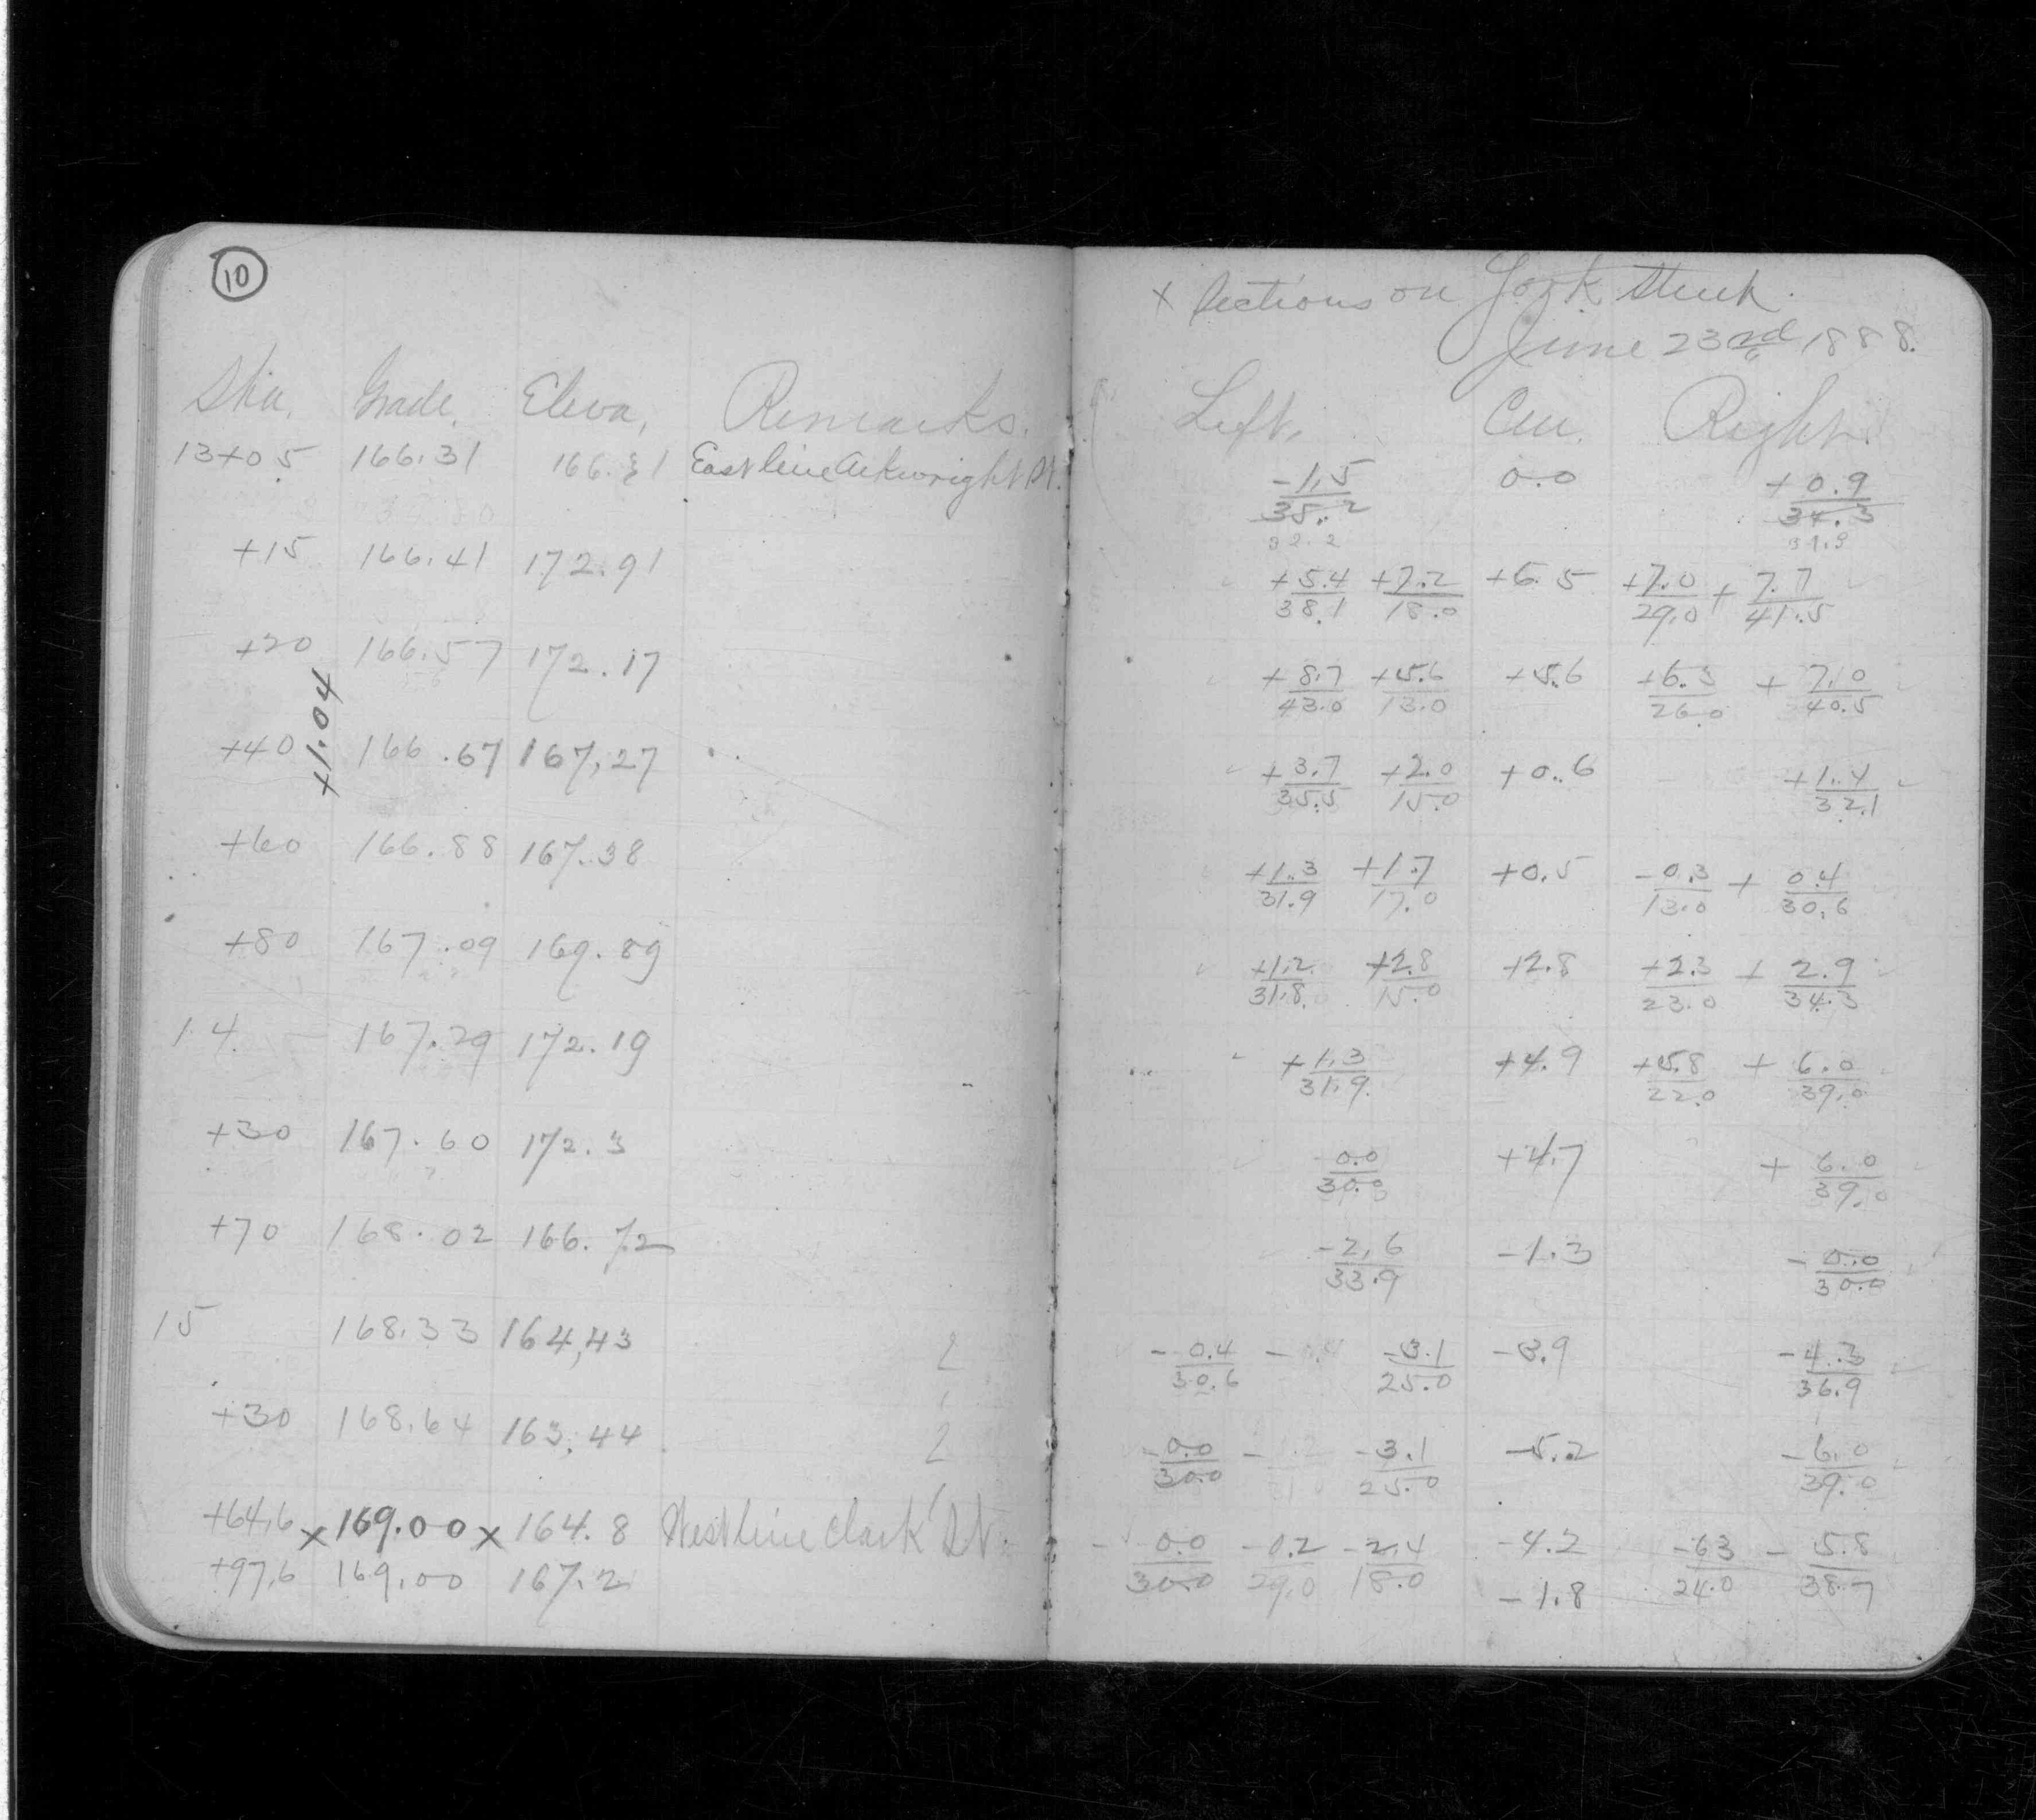 10
Sta. Grade. Eleva. Remarks.
13+05 166.31 166.31 East line Arkwright St.
+15 166.41 172.91
+20 166.57 172.17
+1.04
+40 166.67 167.27
+60 166.88 167.38
+80 167.09 169.89
14 167.29 172.19
+30 167.60 172.3
+70 168.02 166.72
15 168.33 164.43
+30 168.64 163.44
+64.6 x 169.00 x 164.8 West line Clark St.
+97.6 169.00 167.2
x Sections on York Street.
June 23rd 1888.
Left. Cen. Right.
-1.5 0.0 +0.9
35.2 34.3
32.2 31.3
+5.4 +7.2 +6.5 +7.0 + 7.7
38.1 18.0 29.0 41.5
+8.7 +5.6 +5.6 +6.3 + 7.0
43.0 13.0 26.0 40.5
+3.7 +2.0 +0.6 +1.4
35.5 15.0 32.1
+1.3 +1.7 +0.5 -0.3 + 0.4
31.9 17.0 13.0 30.6
+1.2 +2.8 +2.8 +2.3 + 2.9
31.8 15.0 23.0 34.3
+1.3 +4.9 +5.8 + 6.0
31.9 22.0 39.0
0.0 +4.7 + 6.0
30.0 39.0
-2.6 -1.3 - 0.0
33.9 30.0
-0.4 -3.1 -3.9 -4.3
30.6 25.0 36.9
-0.0 -3.1 -5.2 -6.0
30.0 25.0 39.0
- 0.0 -0.2 -2.4 -4.2 -6.3 - 5.8
30.0 29.0 18.0 24.0 38.7
-1.8